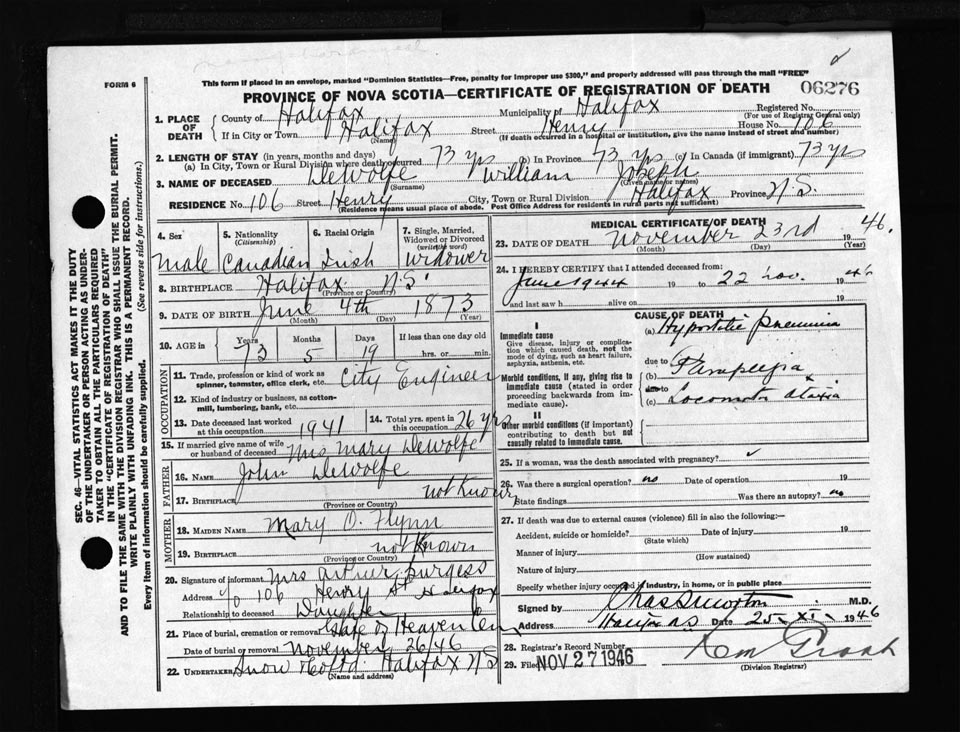 FORM 6
This form if placed in an envelope, marked "Dominion Statistics—Free, penalty for improper use $300," and properly addressed will pass through the mail "FREE"
PROVINCE OF NOVA SCOTIA—CERTIFICATE OF REGISTRATION OF DEATH
06276
1. PLACE OF DEATH
County of Halifax Municipality of Halifax Registered No.
(For use of Registrar General only)
If in City or Town Halifax Street Henry House No. 106
(Name) (If death occurred in a hospital or institution, give the name instead of street and number)
2. LENGTH OF STAY (in years, months and days)
(a) In City, Town or Rural Division where death occurred 73 yrs (b) In Province 73 yrs (c) In Canada (if immigrant) 73 yrs
3. NAME OF DECEASED DeWolfe William Joseph
(Surname) (Given name or names)
RESIDENCE No. 106 Street Henry City, Town or Rural Division Halifax Province N.S.
(Residence means usual place of abode. Post Office Address for residents in rural parts not sufficient)
4. Sex 5. Nationality (Citizenship) 6. Racial Origin 7. Single, Married, Widowed or Divorced (write the word)
Male Canadian Irish Widower
8. BIRTHPLACE Halifax N.S.
(Province or Country)
9. DATE OF BIRTH June 4th 1873
(Month) (Day) (Year)
10. AGE in Years Months Days If less than one day old
73 5 19 hrs. or min.
OCCUPATION
11. Trade, profession or kind of work as spinner, teamster, office clerk, etc. City Engineer
12. Kind of industry or business, as cotton-mill, lumbering, bank, etc.
13. Date deceased last worked at this occupation 1941
14. Total yrs. spent in this occupation 26 yrs
15. If married give name of wife or husband of deceased Mrs Mary DeWolfe
FATHER
16. NAME John DeWolfe
17. BIRTHPLACE not Known
(Province or Country)
MOTHER
18. MAIDEN NAME Mary O. Flynn
19. BIRTHPLACE not Known
(Province or Country)
20. Signature of informant Mrs Arthur Burgess
Address c/o 106 Henry St Halifax
Relationship to deceased Daughter
21. Place of burial, cremation or removal Gate of Heaven Cem
Date of burial or removal November 26/46
22. UNDERTAKER Snow & Co Ltd. Halifax N.S
(Name and address)
MEDICAL CERTIFICATE OF DEATH
23. DATE OF DEATH November 23rd 1946.
(Month) (Day) (Year)
24. I HEREBY CERTIFY that I attended deceased from:
June 1944 19 to 22 Nov. 1946
and last saw h alive on 19
CAUSE OF DEATH
I
Immediate cause
Give disease, injury or complication which caused death, not the mode of dying, such as heart failure, asphyxia, asthenia, etc.
(a) Hypostatic Pneumonia
due to
Morbid conditions, if any, giving rise to immediate cause (stated in order proceeding backwards from immediate cause).
(b) Paraplegia &
due to
(c) Locomotor Ataxia
II
Other morbid conditions (if important) contributing to death but not causally related to immediate cause.
25. If a woman, was the death associated with pregnancy?
26. Was there a surgical operation? no Date of operation 19
State findings Was there an autopsy? no
27. If death was due to external causes (violence) fill in also the following:—
Accident, suicide or homicide? Date of injury 19
(State which)
Manner of injury
(How sustained)
Nature of injury
Specify whether injury occurred in industry, in home, or in public place
Signed by Chas S Morton M.D.
Address Halifax N.S Date 25-XI- 1946
28. Registrar's Record Number
29. Filed NOV 27 1946
(Division Registrar)
SEC. 46—VITAL STATISTICS ACT MAKES IT THE DUTY
OF THE UNDERTAKER OR PERSON ACTING AS UNDER-
TAKER TO OBTAIN ALL THE PARTICULARS REQUIRED
IN THE "CERTIFICATE OF REGISTRATION OF DEATH"
AND TO FILE THE SAME WITH THE DIVISION REGISTRAR WHO SHALL ISSUE THE BURIAL PERMIT.
WRITE PLAINLY WITH UNFADING INK. THIS IS A PERMANENT RECORD.
Every item of information should be carefully supplied. (See reverse side for instructions.)